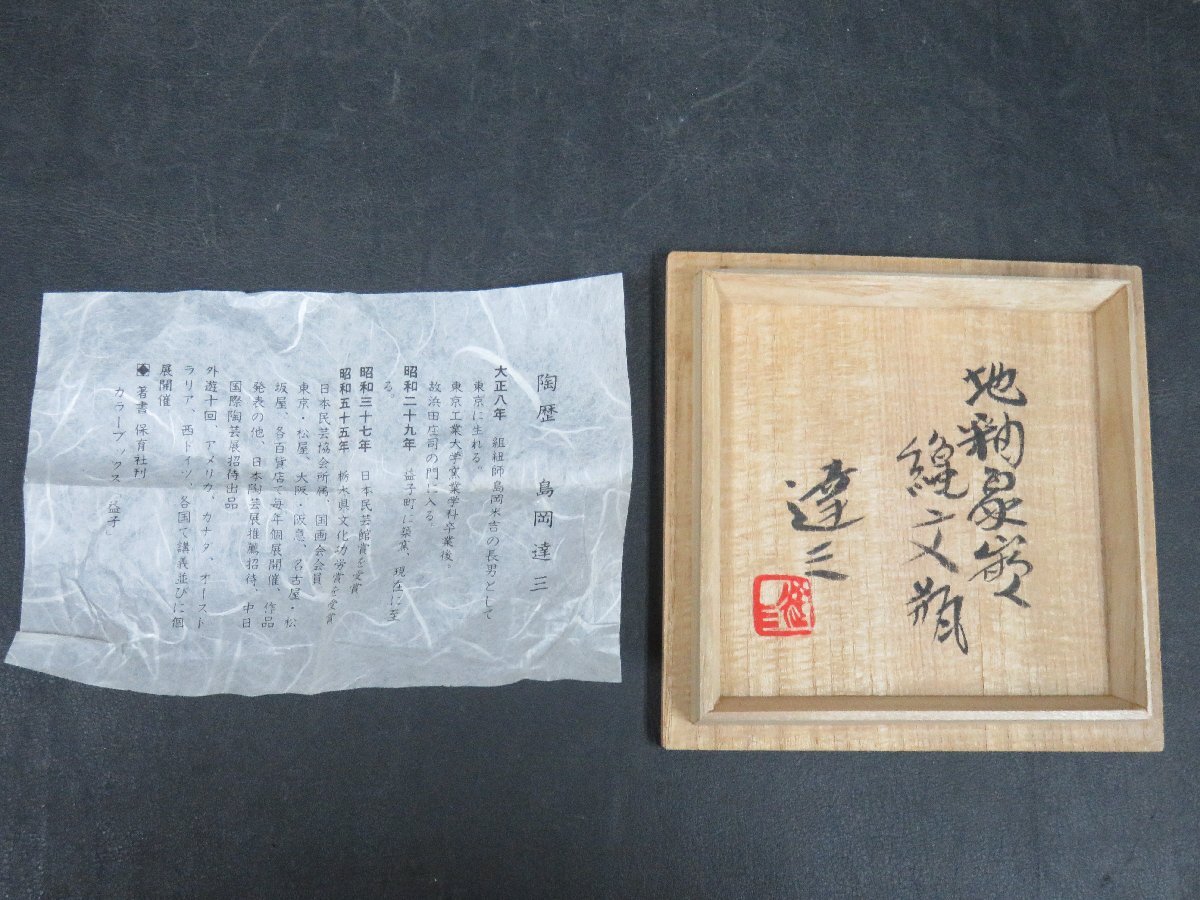 陶歴　島岡達三
大正八年　組紐師島岡米吉の長男として
東京に生れる。
東京工業大学窯業学科卒業後。
故浜田庄司の門に入る。
昭和二十九年　益子町に築窯、現在に至
る。
昭和三十七年　日本民芸館賞を受賞
昭和五十五年　栃木県文化功労賞を受賞
日本民芸協会所属、国画会会員、
東京・松屋、大阪・阪急、名古屋・松
坂屋、各百貨店で毎年個展開催、作品
発表の他、日本陶芸展推薦招待、中日
国際陶芸展招待出品
外遊十回、アメリカ、カナダ、オースト
ラリア、西ドイツ、各国で講義並びに個
展開催
◆著書　保育社刊
カラーブックス「益子」
地釉象嵌
縄文瓶
達三